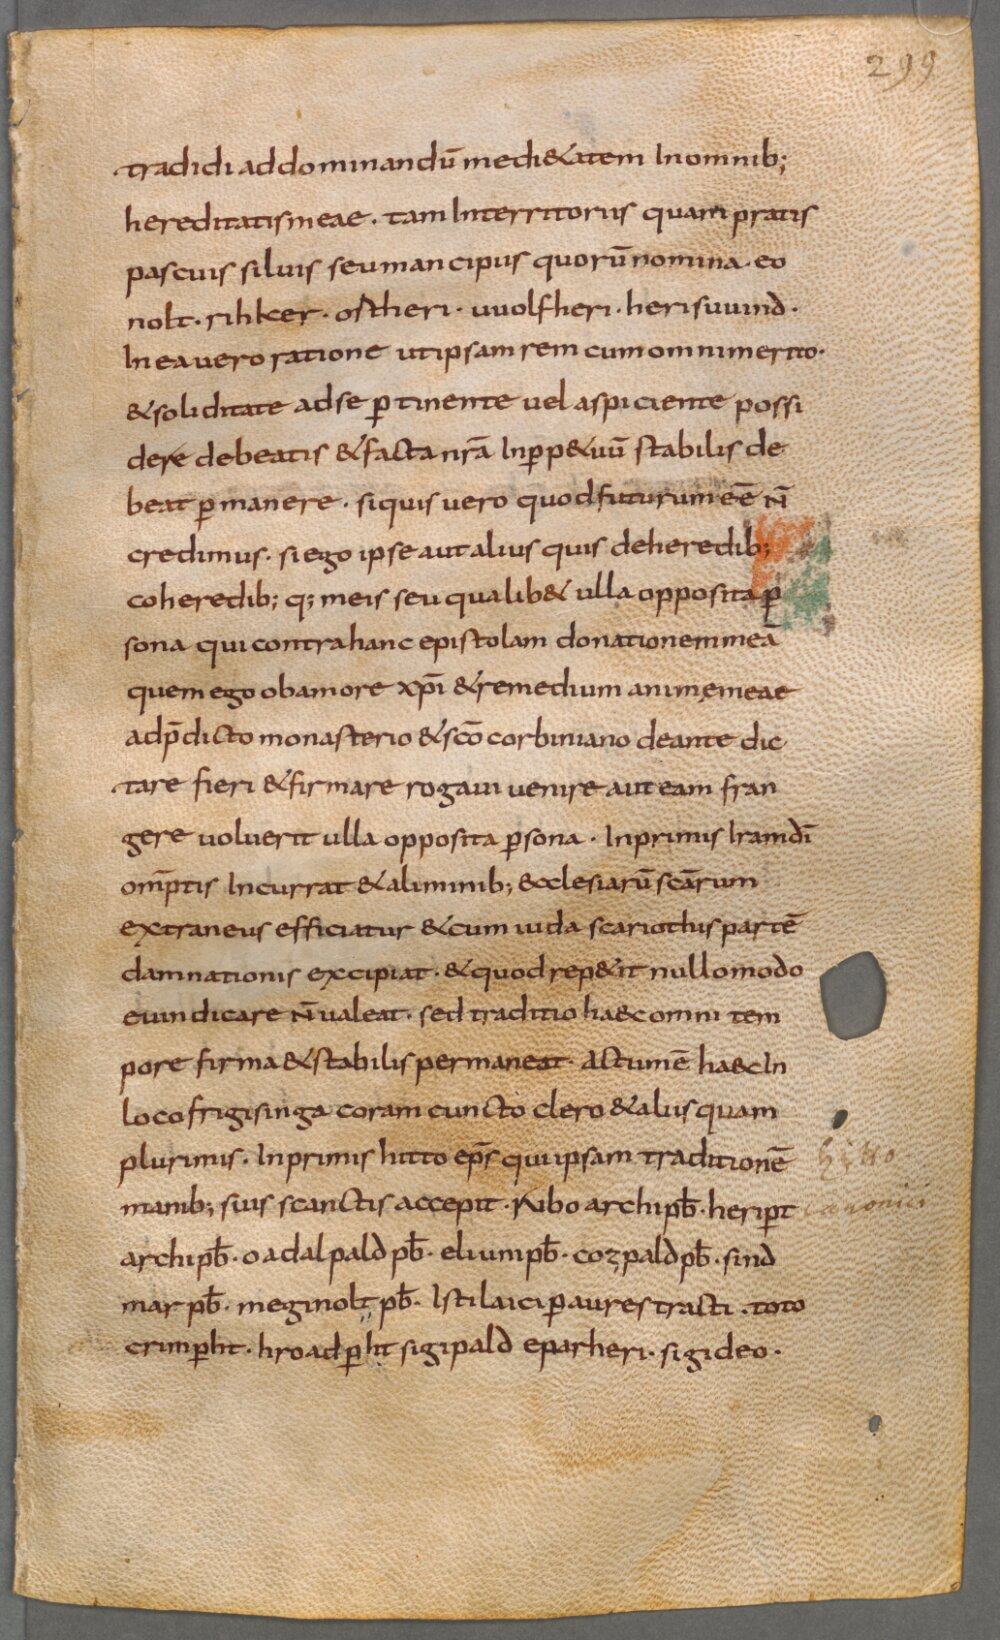 299
tradidi ad dominandū medi&atem In omnib;
hereditatis meae · tam Interritoriis quam pratis
pascuis siluis seu mancipiis quorū nomina · eo
nolt · rihker · ostheri · uuolfheri · herisuuind ·
In ea uero ratione ut ipsam rem cum omni merito ·
& soliditate ad se p̲tinente uel aspiciente possi
dere debeatis & facta nr̄a In p̲p&uū stabilis de
beat p̲manere · siquis uero quod futurum eē n̄
credimus · si ego ipse aut alius quis de heredib;
coheredib; q; meis seu qualib& ulla opposita p̲
sona qui contra hanc epistolam donationem meā
quem ego ob amore xp̄i & remedium animę meae
ad p̄dicto monasterio & sc̄o corbiniano de ante dic
tare fieri & firmare rogaui uenire aut eam fran
gere uoluerit ulla opposita p̲sona · Inprimis Iram dī
om̄ptis Incurrat & a liminib; &cclesiarū sc̄arum
extraneus efficiatur & cum iuda scariothis partē
damnationis excipiat · & quod rep&it nullo modo
euindicare n̄ ualeat · sed traditio haec omni tem
pore firma & stabilis permaneat · Actum ē haec In
loco frigisinga coram cuncto clero & aliis quam
plurimis · Inprimis hitto ep̄s qui ipsam traditionē
manib; suis scanctis accepit · Kibo archipb̄ · herip̲t
archipb̄ · oadalpald pb̄ · elium pb̄ · cozpald pb̄ · sind
mar pb̄ · meginolt pb̄ · Isti laici p̲ aures tracti · toto
crimp̲ht · hroadp̲ht sigipald eparheri · sigideo ·
Hitto
canonici